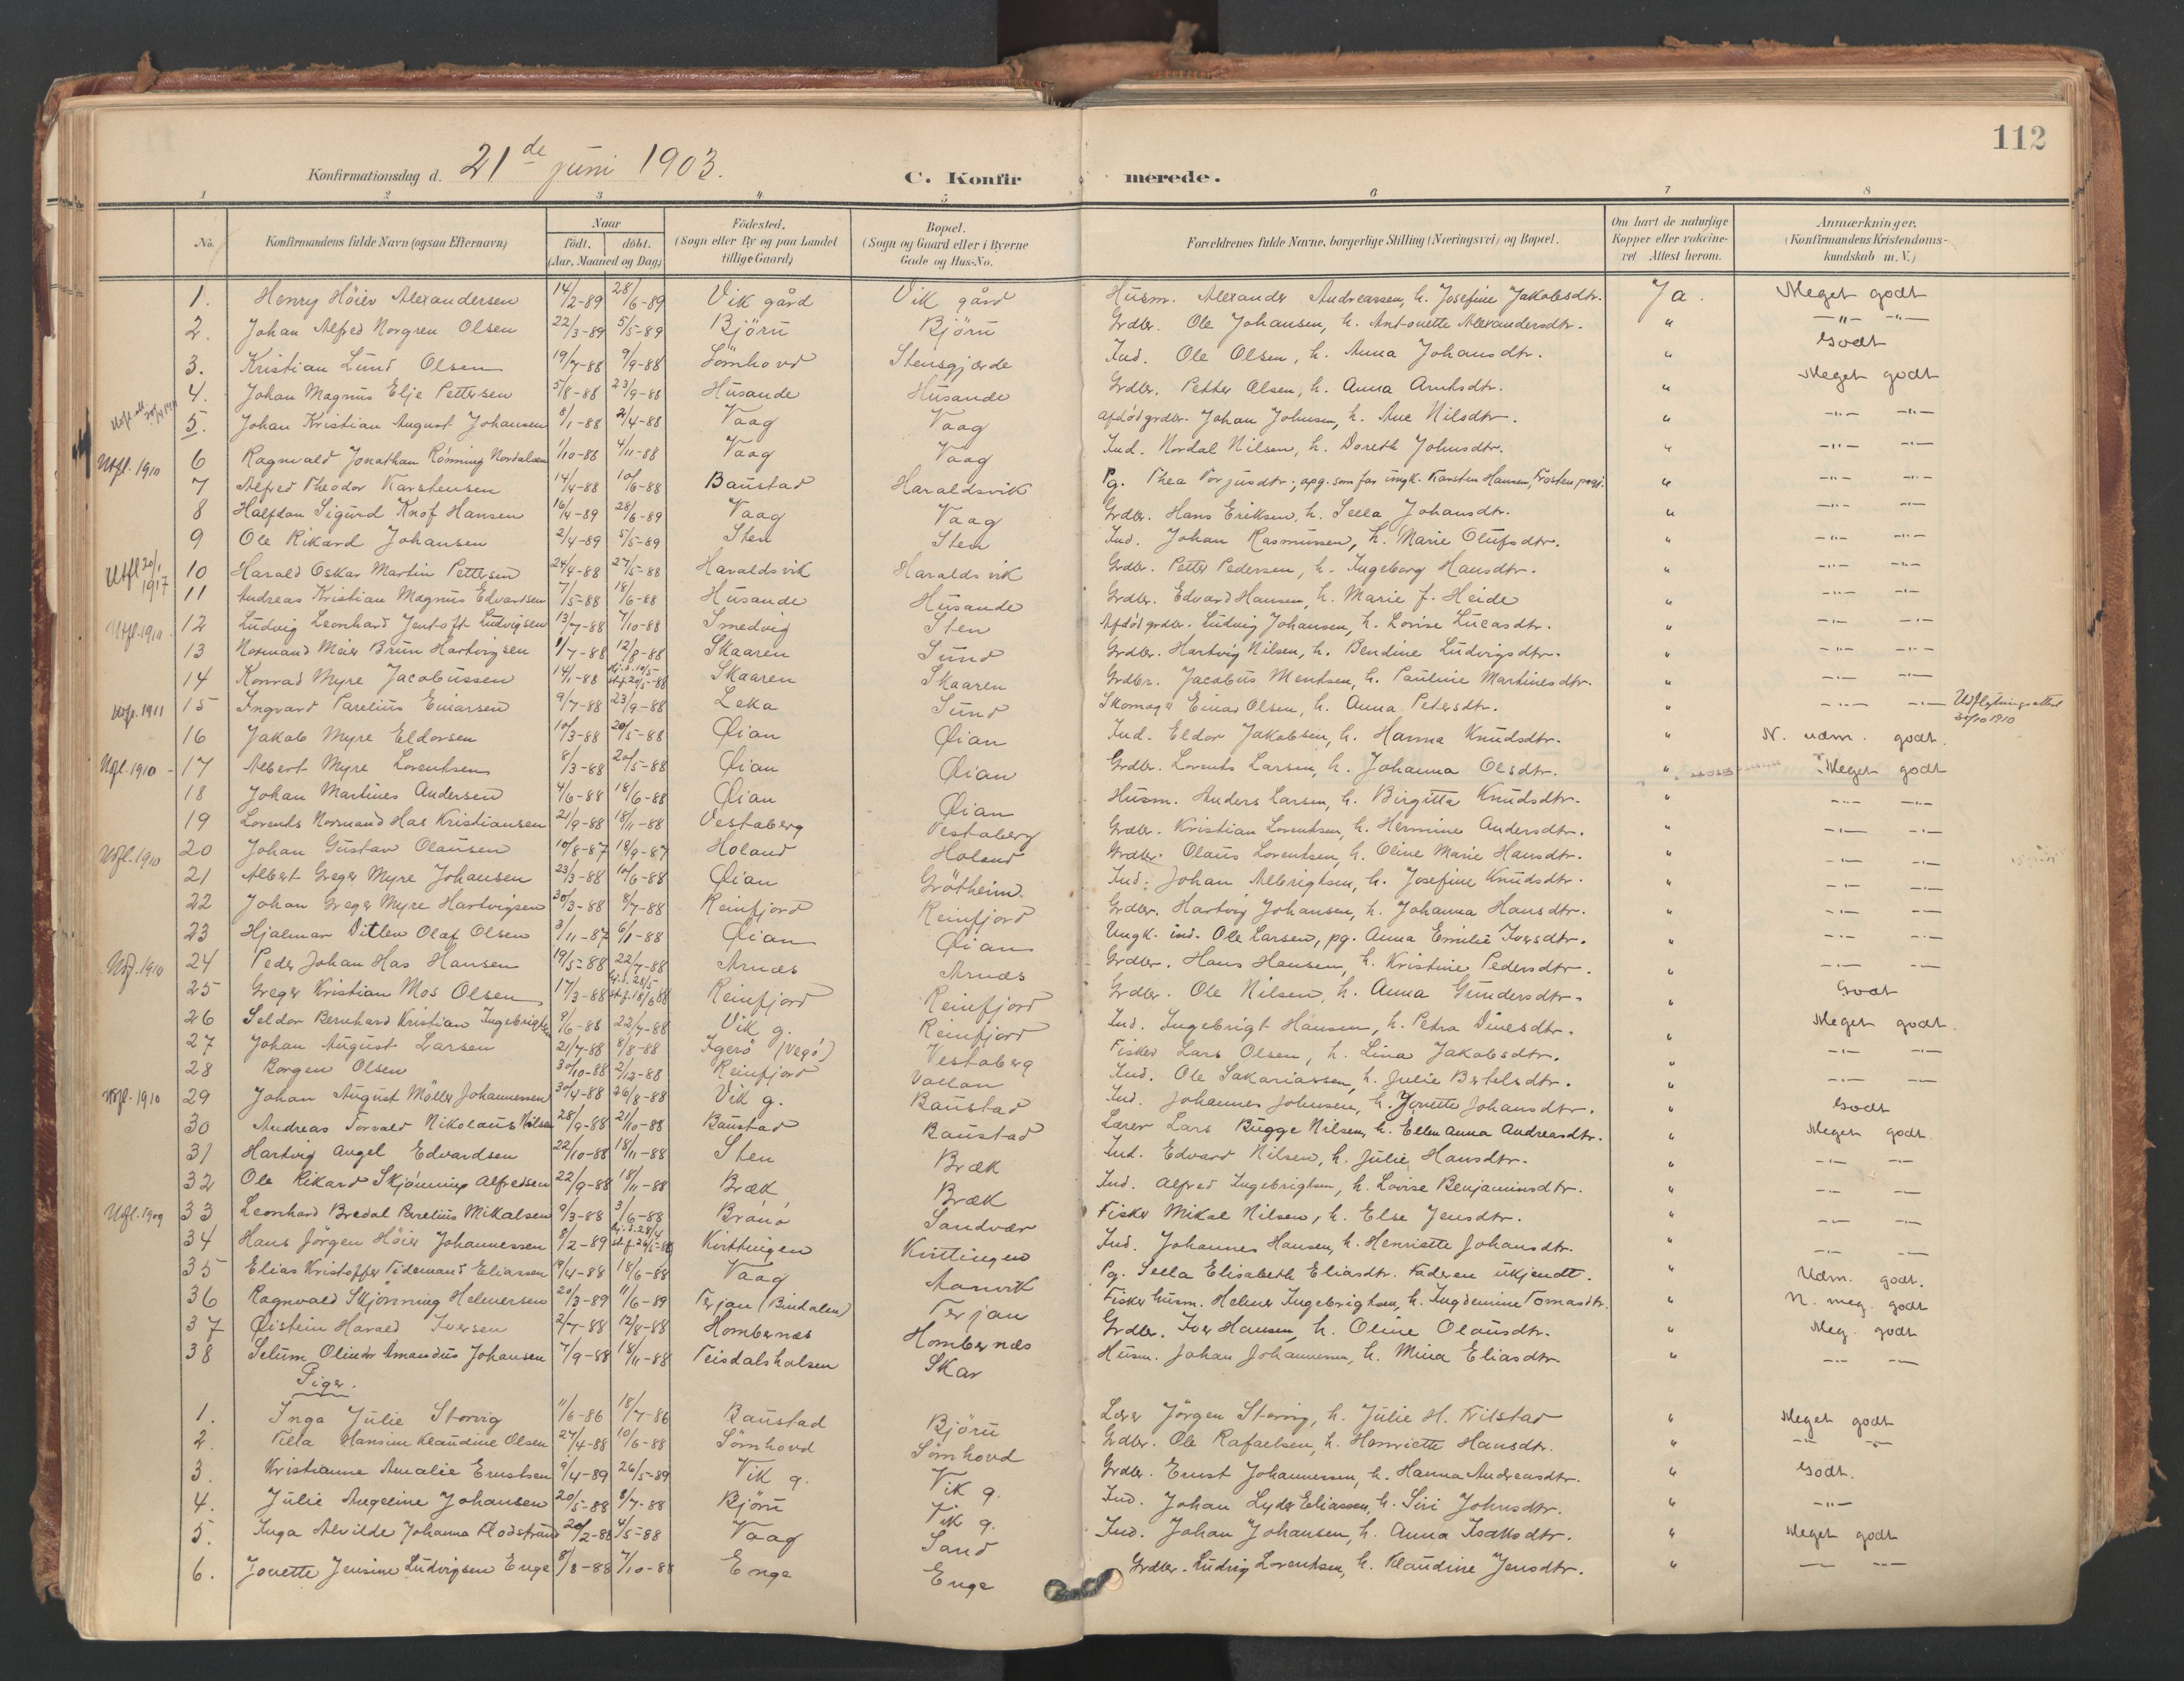 112
Konfirmationsdag d. 21de juni 1903.
C. Konfirmerede.
1 2 3 4 5 6 7 8
No. Konfirmandens fulde Navn (ogsaa Efternavn) Naar födt. döbt. (Aar, Maaned og Dag) Födested. (Sogn eller By og paa Landet tillige Gaard) Bopæl. (Sogn og Gaard eller i Byerne Gade og Hus-No. Forældrenes fulde Navne, borgerlige Stilling (Næringsvei) og Bopæl. Om havt de naturlige Kopper eller vakcineret Attest herom. Anmærkninger. (Konfirmandens Kristendomskundskab m. V.)
1. Henry Höier Alexandersen 14/2-89 28/6-89 Vik gård Vik gård Husm. Alexander Andreassen, h. Josefine Jakobsdtr. Ja. Meget godt
2. Johan Alfred Norgren Olsen 22/3-89 5/5-89 Björü Björü Grdbr. Ole Johansen, h. Antonette Alexandersdtr. " —"— —"—
3. Kristian Lund Olsen 19/7-88 9/9-88 Sömhovd Stensgjærde Ind. Ole Olsen, h. Anna Johansdtr. " Godt
4. Johan Magnus Elje Pettersen 5/8-88 23/9-88 Husande Husande Grdbr. Petter Olsen, h. Anna Arntsdtr. " Meget godt
5. Johan Kristian August Johansen 8/1-88 2/4-88 Vaag Vaag afdöd grdbr. Johan Johnsen, h. Ane Nilsdtr. " —"— —"—
Utfl. 1910 6 Ragnvald Jonathan Rönning Nordalsen 1/10-88 4/11-88 Vaag Vaag Ind. Nordal Nilsen, h. Doreth Johnsdtr. " —"— —"—
7 Alfred Theodor Karstensen 14/4-88 10/6-88 Baustad Haraldsvik Pg. Thea Torjusdtr., opg. som far ungk. Karsten Hansen, Frosten prgj. " —"— —"—
8 Halfdan Sigurd Knof Hansen 16/4-89 28/6-89 Vaag Vaag Grdbr. Hans Eriksen, h. Sella Johansdtr. " —"— —"—
9 Ole Rikard Johansen 2/4-89 5/5-89 Sten Sten Ind. Johan Rasmussen, h. Marie Olufsdtr. " —"— —"—
Utfl 20/1 1917 10 Harald Oskar Martin Pettersen 24/4-88 27/5-88 Haraldsvik Haraldsvik Grdbr. Petter Pedersen, h. Ingeborg Hansdtr. " —"— —"—
11 Andreas Kristian Magnus Edvardsen 7/5-88 18/6-88 Husande Husande Grdbr. Edvard Hansen, h. Marie f. Heide " —"— —"—
Utfl. 1910. 12 Ludvig Leonhard Jentoft Ludvigsen 13/7-88 7/10-88 Smedvig Sten Afdöd grdbr. Ludvig Johansen, h. Lovise Lucasdtr. " —"— —"—
13 Normand Meier Brun Hartvigsen 1/7-88 12/8-88 Skaaren Sund Grdbr. Hartvig Nilsen, h. Bendine Ludvigsdtr. " —"— —"—
14 Konrad Myre Jacobussen 14/1-88 hj.d. 10/5- st.f. 20/5-88 Skaaren Skaaren Grdbr. Jacobus Mentsen, h. Pauline Martinesdtr. " —"— —"—
Utfl. 1911 15 Ingvard Parelius Einarsen 9/7-88 23/9-88 Leka Sund Skomager Einar Olsen, h. Anna Petersdtr. " —"— —"— Udflytningsattest 31/10 1910
16 Jakob Myre Eldorsen 10/3-88 20/5-88 Øian Øian Ind. Eldor Jakobsen, h. Hanna Knudsdtr. " N. udm. godt.
Utfl. 1910 - 17 Albert Myre Lorentsen 8/3-88 20/5-88 Øian Øian Grdbr. Lorents Larsen, h. Johanna Olsdtr. " Meget godt
18 Johan Martines Andersen 4/6-88 18/6-88 Øian Øian Husm. Anders Larsen, h. Birgitta Knudsdtr. " —"— —"—
19 Lorents Normand Has Kristiansen 21/9-88 18/11-88 Vestaberg Vestaberg Grdbr. Kristian Lorentsen, h. Hermine Andersdtr. " —"— —"—
Utfl. 1910 20 Johan Gustav Olausen 10/8-87 18/9-87 Holand Holand Grdbr. Olaus Lorentsen, h. Oline Marie Hansdtr. " —"— —"—
21 Albert Greger Myre Johansen 23/3-88 10/6-88 Øian Grötheim Ind. Johan Albrigtsen, h. Josefine Knudsdtr. " —"— —"—
22 Johan Greger Myre Hartvigsen 30/3-88 8/7-88 Reinfjord Reinfjord Grdbr. Hartvig Johansen, h. Johanna Hansdtr. " —"— —"—
23 Hjalmar Ditlev Olaf Olsen 3/11-87 6/1-88 Øian Øian Ungk. ind. Ole Larsen, pg. Anna Emilie Iversdtr. " —"— —"—
Utfl. 1910 24 Peder Johan Has Hansen 19/5-88 22/7-88 Arnæs Arnæs Grdbr. Hans Hansen, h. Kristine Pedersdtr. " —"— —"—
25 Greger Kristian Mos Olsen 17/3-88 hj.d. 28/5- st.f. 18/6 88 Reinfjord Reinfjord Grdbr. Ole Nilsen, h. Anna Gundersdtr. " Godt
26 Seldor Bernhard Kristian Ingebrigtsen 9/6-88 22/7-88 Vik g. Reinfjord Ind. Ingebrigt Hansen, h. Petra Dinesdtr. " Meget godt.
27 Johan August Larsen 21/7-88 8/8-88 Igerö (Vegö) Vestaberg Fisker Lars Olsen, h. Lina Jakobsdtr. " —"— —"—
28 Borgen Olsen 30/10-88 2/12-88 Reinfjord Vollan Ind. Ole Sakariassen, h. Julie Bertelsdtr. " —"— —"—
Utfl. 1910 29 Johan August Möller Johannessen 30/4-88 26/8-88 Vik g. Baustad Ind. Johannes Johnsen, h. Jonette Johansdtr. " Godt
30 Andreas Torvald Nikolaus Nilsen 28/9-88 21/10-88 Baustad Baustad Lærer Lars Bugge Nilsen, h. Ellen Anna Andreasdtr. " Meget godt.
31 Hartvig Angel Edvardsen 22/10-88 18/11-88 Sten Bræk Ind. Edvard Nilsen, h. Julie Hansdtr. " —"— —"—
32 Ole Rikard Skjönning Alfredsen 22/9-88 18/11-88 Bræk Bræk Ind. Alfred Ingebrigtsen, h. Lovise Benjaminsdtr. " —"— —"—
Utfl. 1909 33 Leonhard Bredal Parelius Mikalsen 9/3-88 3/6-88 Brönö Sandvær Fisker Mikal Nilsen, h. Else Jensdtr. " —"— —"—
34 Hans Jörgen Höier Johannessen 8/2-89 hj.d. 28/4 st.f. 26/5-89 Kvittingen Kvittingen Ind. Johannes Hansen, h. Henriette Johansdtr. " —"— —"—
35 Elias Kristoffer Tidemand Eliassen 19/4-88 18/6-88 Vaag Aarvik Pg. Sella Elisabeth Eliasdtr. Faderen ukjendt. " Udm. godt.
36 Ragnvald Skjönning Helmersen 20/3-89 11/6-89 Terjan (Bindalen) Terjan Fisker husm. Helmer Ingebrigtsen, h. Ingdemine Tomasdtr. " N. meg. godt
37 Øistein Harald Iversen 2/7-88 12/8-88 Hombernæs Hombernæs Grdbr. Iver Hansen, h. Oline Olausdtr. " Meg. godt
38 Selum Olinder Amandus Johansen 7/9-88 18/11-88 Teisdalshalsen Skar Husm. Johan Johannessen, h. Mina Eliasdtr. " —"— —"—
Piger.
1. Inga Julie Storvig 11/6-86 18/7-86 Baustad Björü Lærer Jörgen Storvig, h. Julie H. Kilstad " Meget godt
2. Villa Hansine Klaudine Olsen 27/4-88 10/6-88 Sömhovd Sömhovd Grdbr. Ole Rafaelsen, h. Henriette Hansdtr. " —"— —"—
3. Kristianne Amalie Ernstsen 9/4-89 26/5-89 Vik g. Vik g. Grdbr. Ernst Johannessen, h. Hanna Andreasdtr. " Godt.
4. Julie Angeline Johansen 20/5-88 8/7-88 Björü Vik g. Ind. Johan Lyder Eliassen, h. Siri Johnsdtr. " —"—
5. Inga Alvilde Johanna Flodstrand 20/2-88 4/5-88 Vaag Sand Ind. Johan Johansen, h. Anna Isaksdtr. " Meget godt
6. Jonette Jensine Ludvigsen Enge 8/8-88 7/10-88 Enge Enge Grdbr. Ludvig Lorentsen, h. Klaudine Jensdtr. " —"— —"—